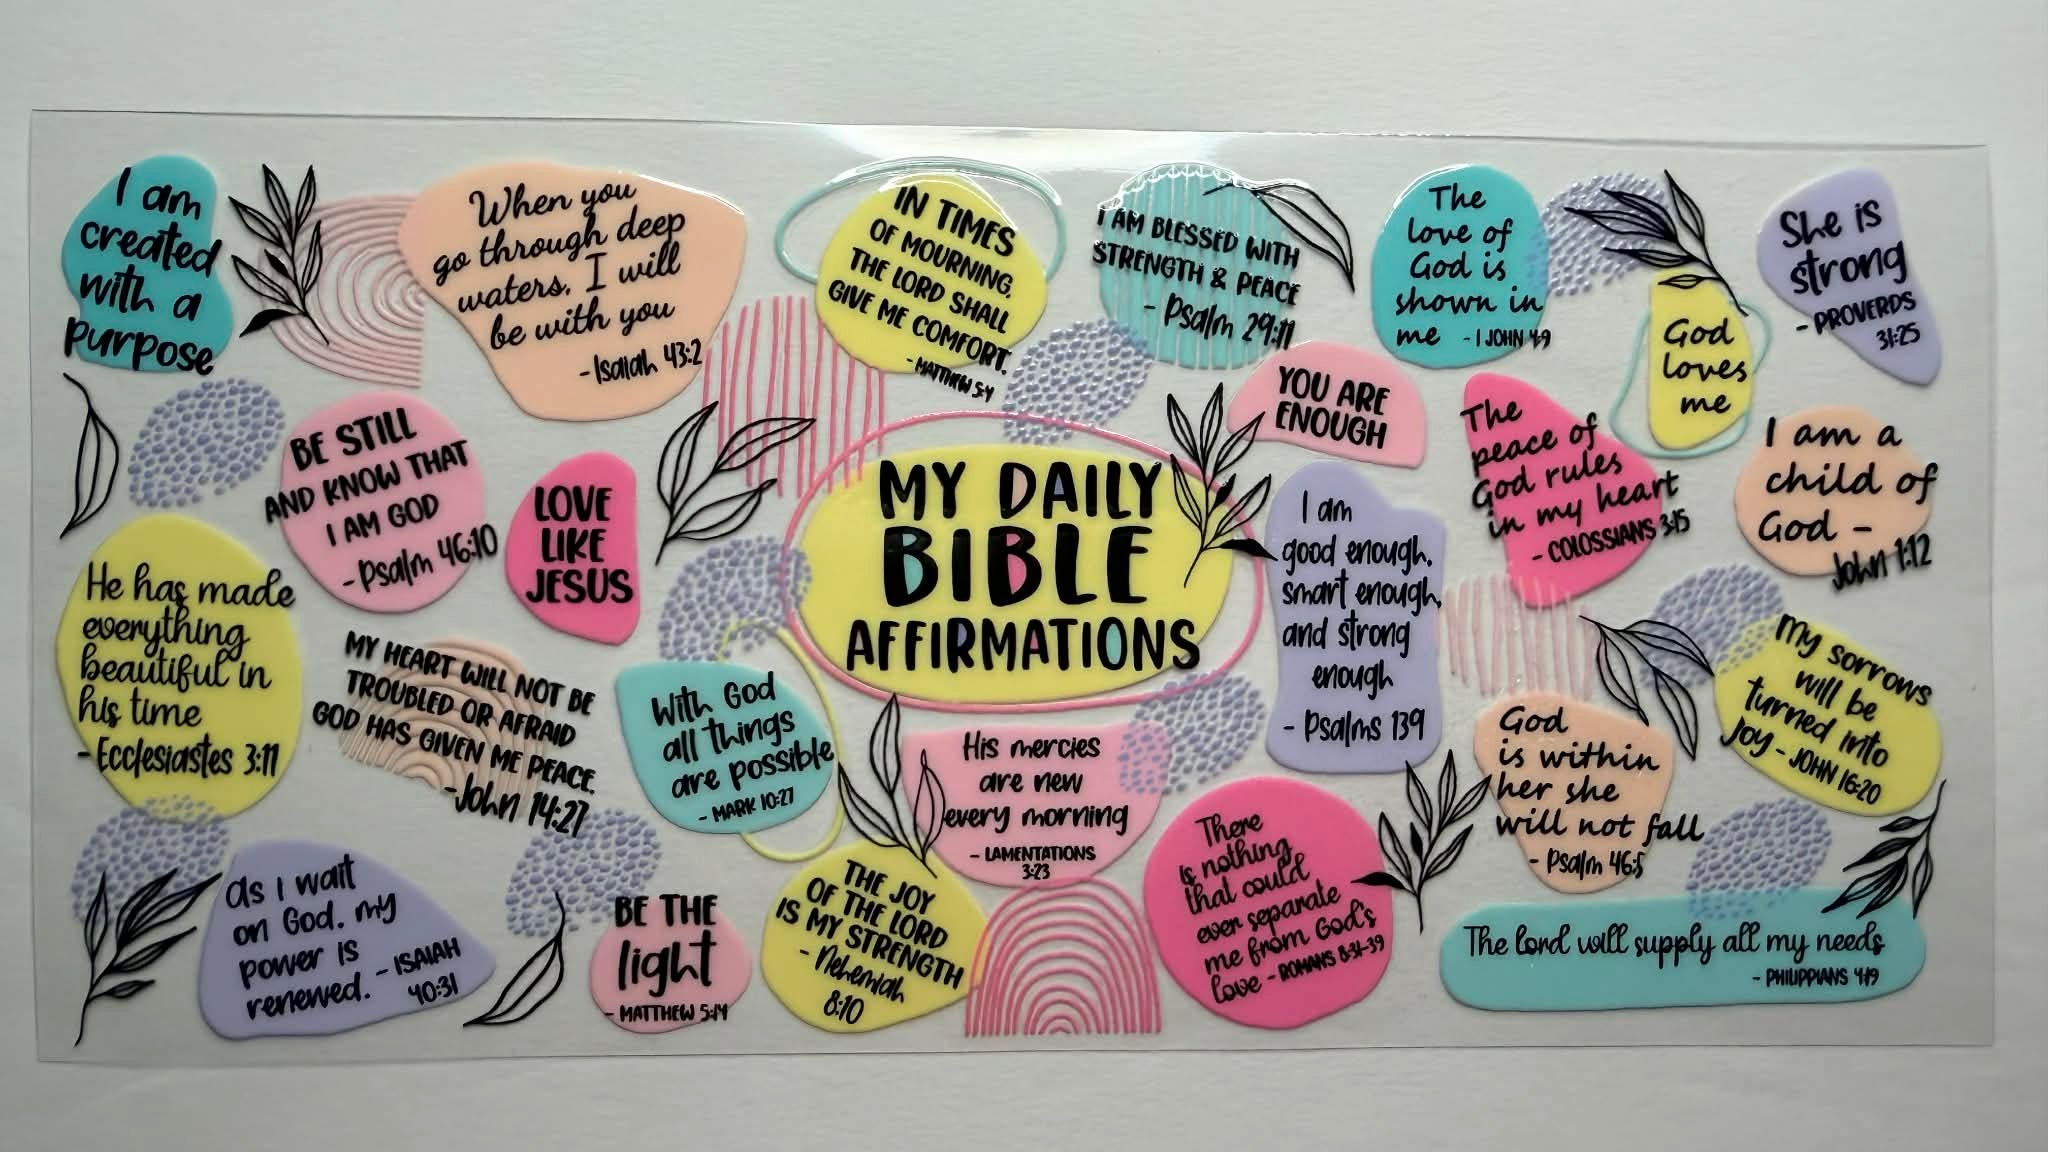 I am
created
with a
purpose
When you
go through deep
waters, I will
be with you
- Isaiah 43:2
IN TIMES
OF MOURNING,
THE LORD SHALL
GIVE ME COMFORT.
- MATTHEW 5:4
I AM BLESSED WITH
STRENGTH & PEACE
- Psalm 29:11
The
love of
God is
shown in
me - 1 JOHN 4:9
She is
strong
- PROVERDS
31:25
God
loves
me
YOU ARE
ENOUGH
The
peace of
God rules
in my heart
- COLOSSIANS 3:15
I am a
child of
God -
John 1:12
BE STILL
AND KNOW THAT
I AM GOD
- Psalm 46:10
LOVE
LIKE
JESUS
MY DAILY
BIBLE
AFFIRMATIONS
I am
good enough,
smart enough,
and strong
enough
- Psalms 139
He has made
everything
beautiful in
his time
- Ecclesiastes 3:11
MY HEART WILL NOT BE
TROUBLED OR AFRAID
GOD HAS GIVEN ME PEACE.
- John 14:27
With God
all things
are possible
- MARK 10:27
His mercies
are new
every morning
- LAMENTATIONS
3:23
God
is within
her she
will not fall
- Psalm 46:5
My sorrows
will be
turned into
Joy - JOHN 16:20
As I wait
on God, my
power is
renewed. - ISAIAH
40:31
BE THE
light
- MATTHEW 5:14
THE JOY
OF THE LORD
IS MY STRENGTH
- Nehemiah
8:10
There
is nothing
that could
ever separate
me from God's
love - ROMANS 8:31-39
The lord will supply all my needs
- PHILIPPIANS 4:19